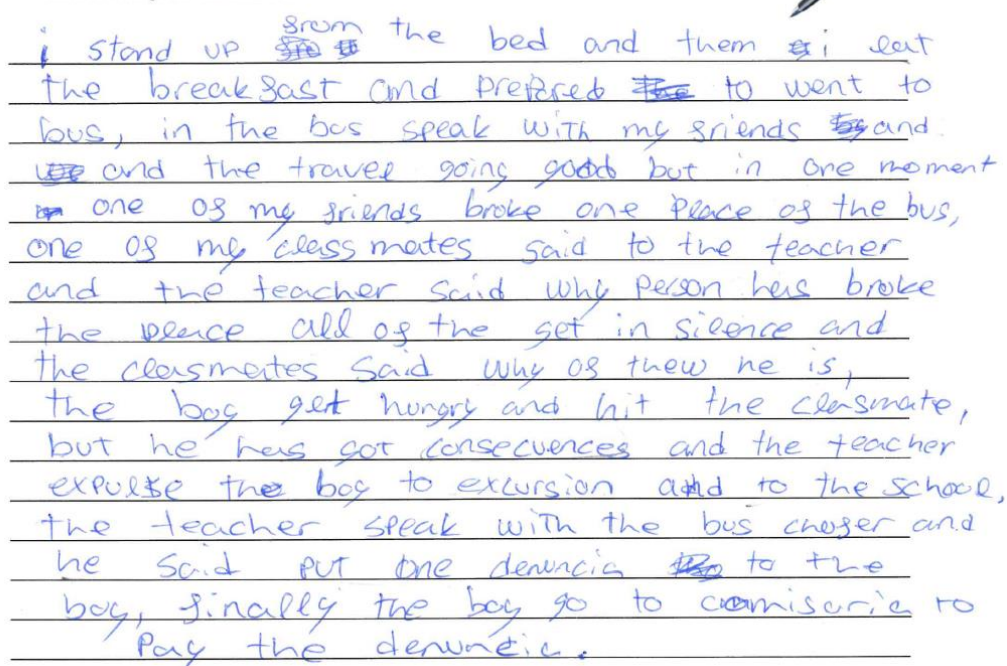 i stand up from the bed and them i eat
the breakfast and prepared to went to
bus, in the bus speak with my friends and
and the travel going good but in one moment
one of my friends broke one place of the bus,
one of my classmates said to the teacher
and the teacher said why person has broke
the pleace all of the get in silence and
the clasmates said why of thew he is,
the boy get hungry and hit the clasmate,
but he has got consecuences and the teacher
expulse the boy to excursion and to the school,
the teacher speak with the bus and
he said put one denuncia to the
boy, finally the boy go to comisaria to
pay the denuncia.